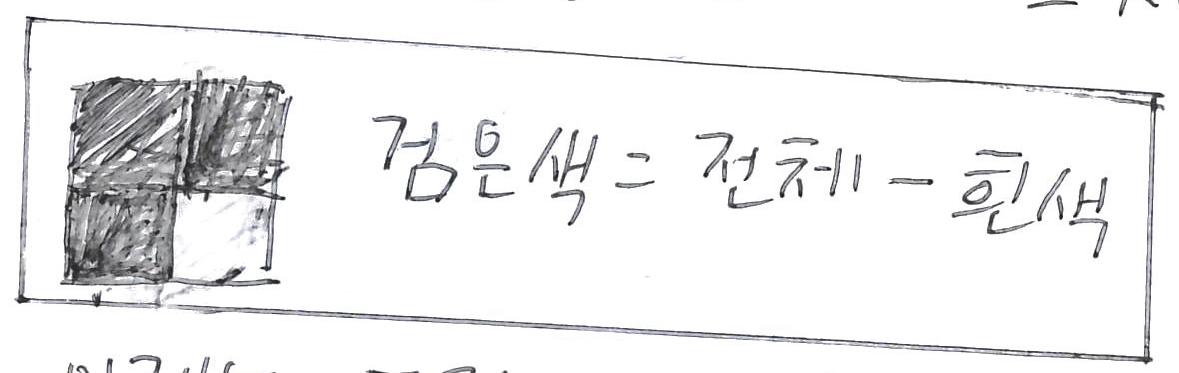 검은색 = 전체 - 흰색